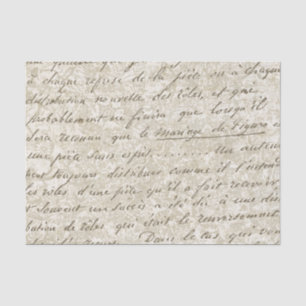 à chaque reprise de la pièce ou à chaque
distribution nouvelle des rôles, et que
probablement ne finira que lorsqu'il
sera reconnu que le mariage de Figaro e
une pièce sans esprit........ Un auteur
peut toujours distribuer comme il l'entend
les rôles d'une pièce qu'il a fait recevoir
et souvent un succès a été dû à une dis
bution de rôles qui était le renversement
Dans le cas qui vou